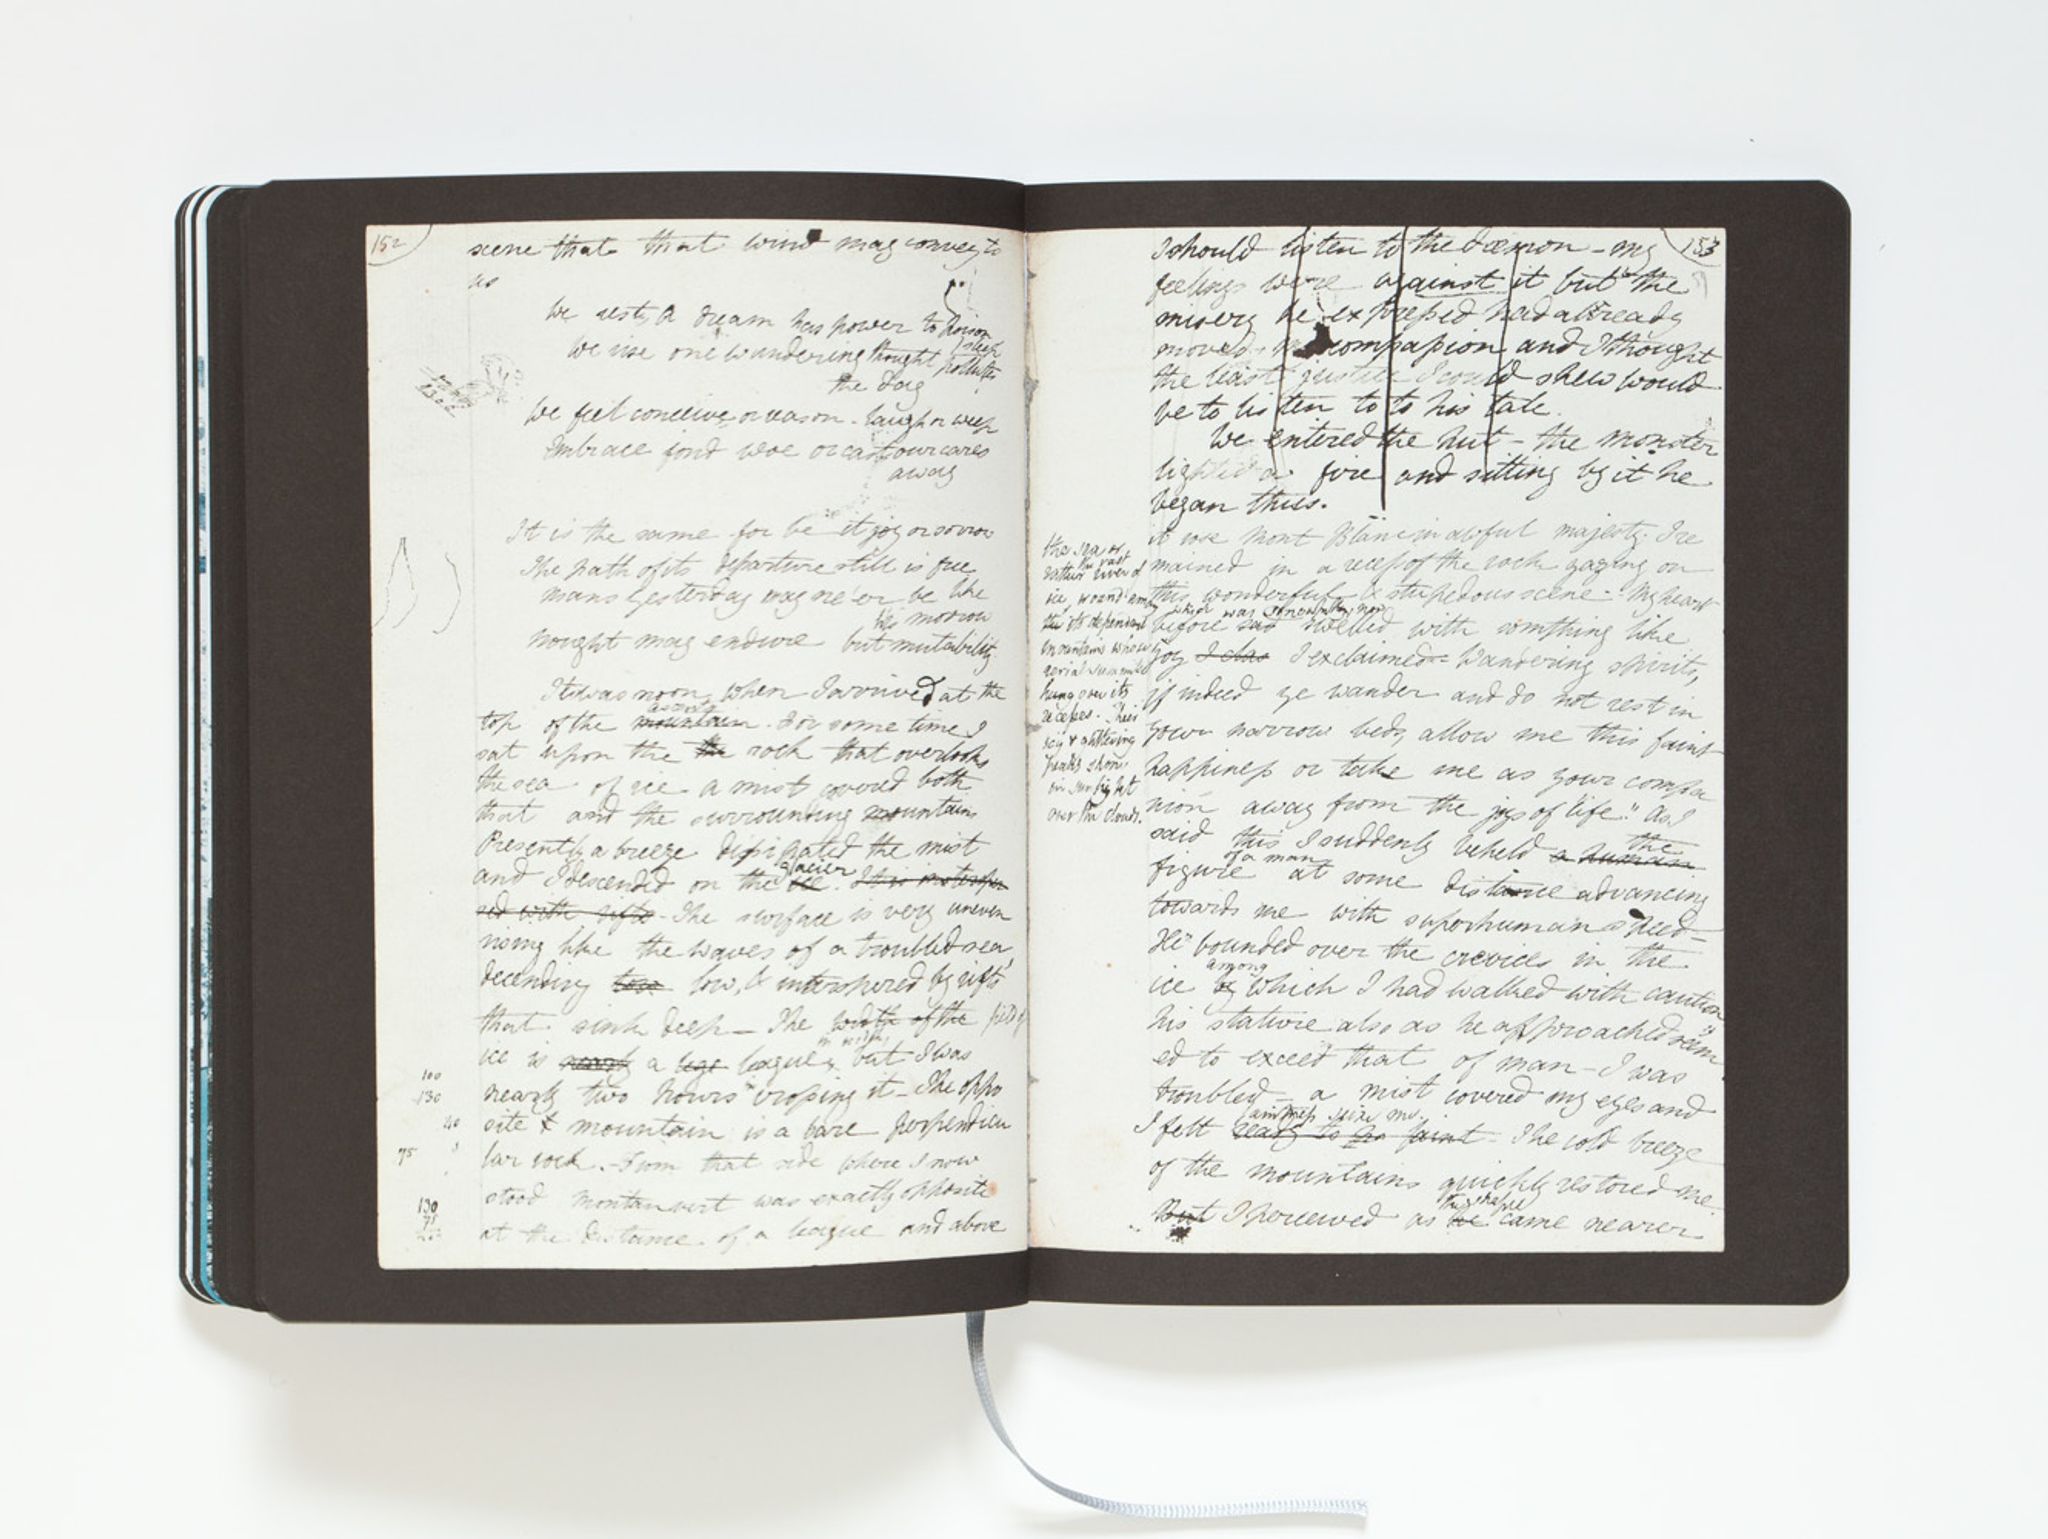 152
scene that that wind may convey to
us
We rest, A dream has power to poison
sleep
We rise one wandering thought pollutes
the day
We feel conceive or reason - laugh or weep
Embrace fond woe or cast our cares
away
It is the same for be it joy or sorrow
The path of its departure still is free
Mans yesterday may ne'er be like
his morrow
Nought may endure but mutability.
It was noon when I arrived at the
ascent
top of the mountain. For some time I
sat upon the the rock that overlooks
the sea of ice a mist covered both
that and the surrounding mountains
Presently a breeze dissipated the mist
glacier
and I descended on the ice. It is intersper
sed with rifts - The surface is very uneven
rising like the waves of a troubled sea
decending low, & interspersed by rifts
that sink deep - The width of the field of
ice is nearly a league, but I was
nearly two hours in crossing it - The oppo
site mountain is a bare perpendicu
lar rock. - From that side where I now
stood montanvert was exactly opposite
at the distance of a league and above
100
130
40
75
130
75
153
I should listen to the dæmon - my
feelings were against it but the
misery he expressed had already
moved compassion and I thought
the least justice I could shew would
be to listen to to his tale.
We entered the hut - the monster
lighted a fire and sitting by it he
began thus.
it rose Mont Blanc in awful majesty. I re
mained in a recess of the rock gazing on
this wonderful & stupedous scene - My heart
which was now
before sad swelled with something like
joy I exclaimed - Wandering spirits,
if indeed ye wander and do not rest in
your narrow beds, allow me this faint
happiness or take me as your compa
nion away from the joys of life." As I
said this I suddenly beheld a human the
of a man
figure at some distance advancing
towards me with superhuman speed -
He bounded over the crevices in the
among
ice by which I had walked with caution
his stature also as he approached seem
ed to exceed that of man - I was
troubled - a mist covered my eyes and
faintness seize me.
I felt ready to faint - The cold breeze
of the mountains quickly restored me.
the shape
But I perceived as he came nearer
the sea or
the vast
rather river of
ice, wound among
its dependant
mountains whose
aerial summits
hung over its
recesses. Their
icy & glittering
peaks shone
in sunlight
over the clouds.